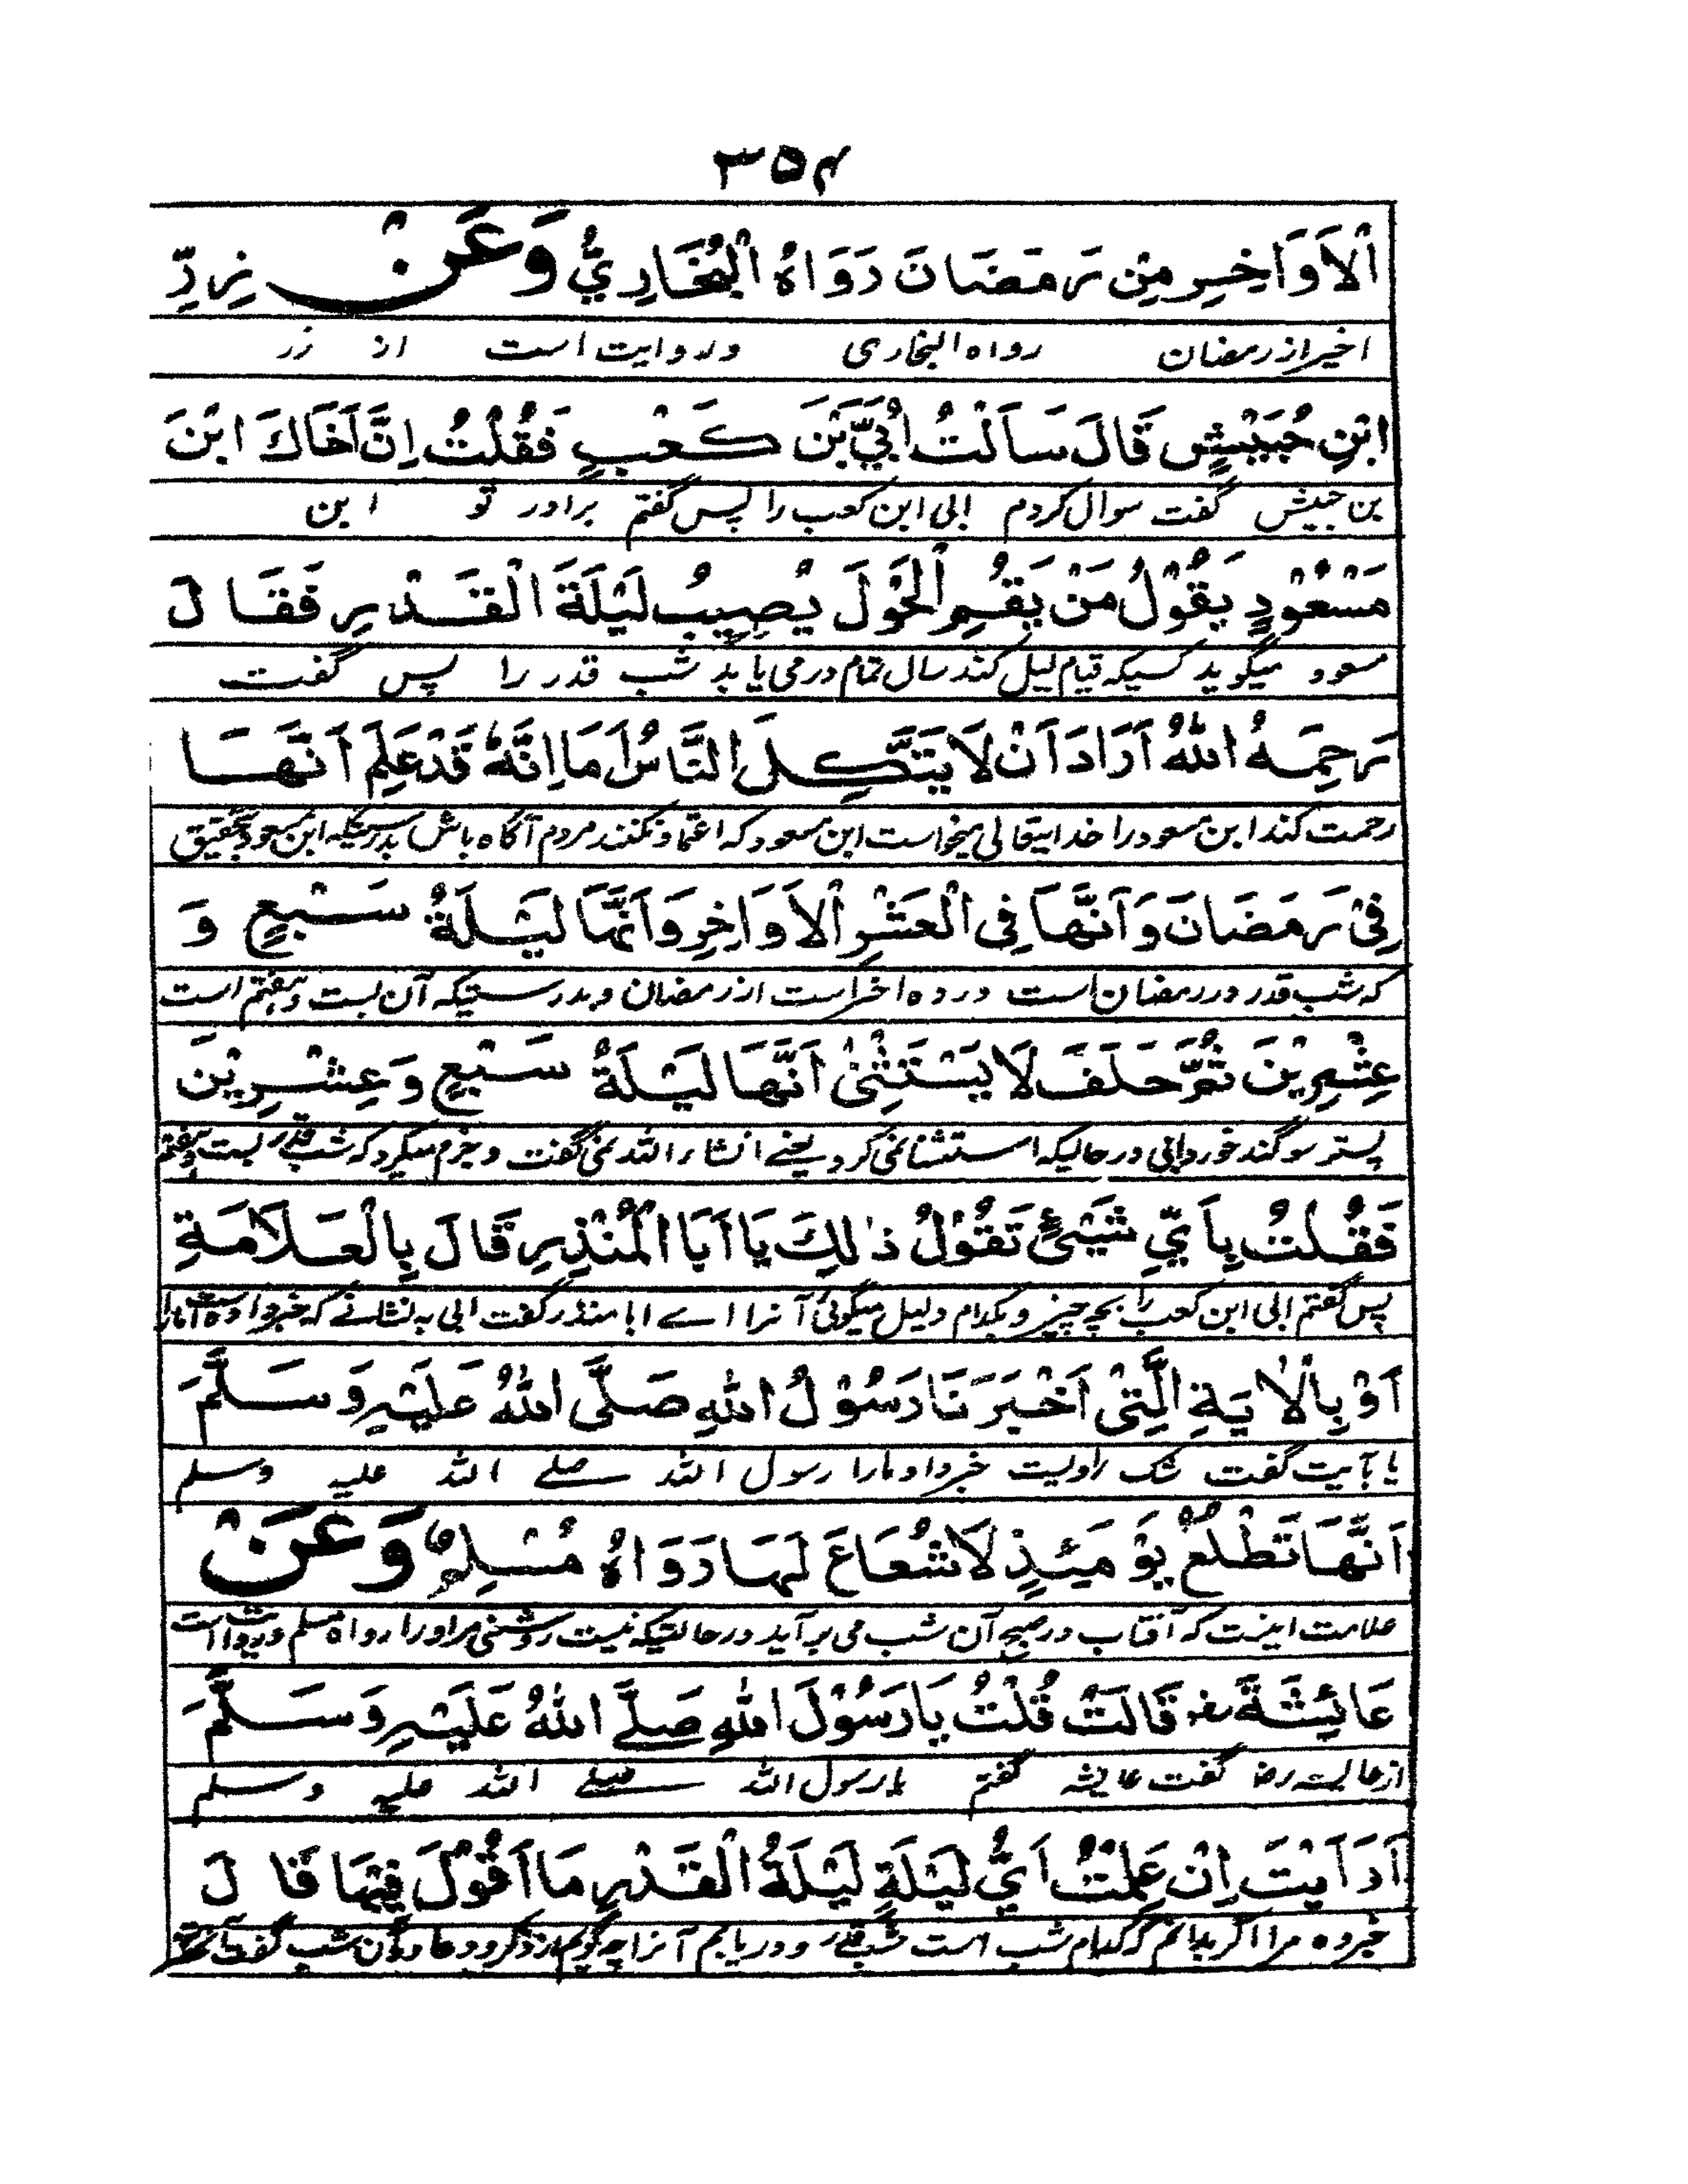 ۳۵۴
اْلاَوَاخِرِ مِنْ رَمَضَانَ رَوَاهُ الْبُخَارِيُّ وَعَنْ زِرِّ
اخیر از رمضان رواه البخاری و روایت است از زر
ابْنِ حُبَيْشٍ قَالَ سَاَلْتُ اُبَيَّ بْنَ كَعْبٍ فَقُلْتُ اِنَّ اَخَاكَ ابْنَ
بن حبیش گفت سوال کردم ابی ابن کعب را پس گفتم برادر تو ابن
مَسْعُوْدٍ يَقُوْلُ مَنْ يَقُمِ الْحَوْلَ يُصِيبُ لَيْلَةَ الْقَدْرِ فَقَالَ
مسعود میگوید کسیکه قیام لیل کند سال تمام درمی یابد شب قدر را پس گفت
رَحِمَهُ اللهُ اَرَادَ اَنْ لَا يَتَّكِلَ النَّاسُ اَمَا اِنَّهٗ قَدْ عَلِمَ اَنَّهَا
رحمت کند ابن مسعود را خدایتعالی میخواست ابن مسعود که اعتماد نکنند مردم آگاه باش بدرستیکه ابن مسعود بتحقیق
فِيْ رَمَضَانَ وَاَنَّهَا فِي الْعَشْرِ اْلاَوَاخِرِ وَاَنَّهَا لَيْلَةُ سَبْعٍ وَ
که شب قدر در رمضان است در ده اخر است از رمضان و بدرستیکه آن بست و هفتم است
عِشْرِيْنَ ثُمَّ حَلَفَ لَا يَسْتَثْنِيْ اَنَّهَا لَيْلَةُ سَبْعٍ وَعِشْرِيْنَ
پستر سوگند خورد ابی در حالیکه استثنا نمی کرد یعنے انشاء الله نمی گفت و جزم میکرد که شب قدر بست و هفتم
فَقُلْتُ بِاَيِّ شَيْئٍ تَقُوْلُ ذٰلِكَ يَا اَبَا الْمُنْذِرِ قَالَ بِالْعَلَامَةِ
پس گفتم ابی ابن کعب را بچه چیز و بکدام دلیل میگوئی آنرا اے ابا منذر گفت ابی به نشانے که خبر داده است ما را
اَوْ بِاْلاٰيَةِ الَّتِيْ اَخْبَرَنَا رَسُوْلُ اللهِ صَلَّى اللهُ عَلَيْهِ وَسَلَّمَ
یا بآیت گفت شک راویست خبر داد مارا رسول الله صلے الله علیه وسلم
اَنَّهَا تَطْلُعُ يَوْمَئِذٍ لَا شُعَاعَ لَهَا رَوَاهُ مُسْلِمٌ وَعَنْ
علامت اینست که آفتاب در صبح آن شب می برآید در حالتیکه نیست روشنی مر اورا رواه مسلم و روایت است
عَائِشَةَ رضـ قَالَتْ قُلْتُ يَا رَسُوْلَ اللهِ صَلَّے اللهُ عَلَيْهِ وَسَلَّمَ
از عایشه رضا گفت عایشه گفتم یا رسول الله صلے الله علیه وسلم
اَرَاَيْتَ اِنْ عَلِمْتُ اَيُّ لَيْلَةٍ لَيْلَةُ الْقَدْرِ مَا اَقُوْلُ فِيْهَا قَالَ
خبرده مرا اگر بدانم که کدام شب است شب قدر و دریابم آنرا چه گویم از ذکر و دعا در آن شب گفت